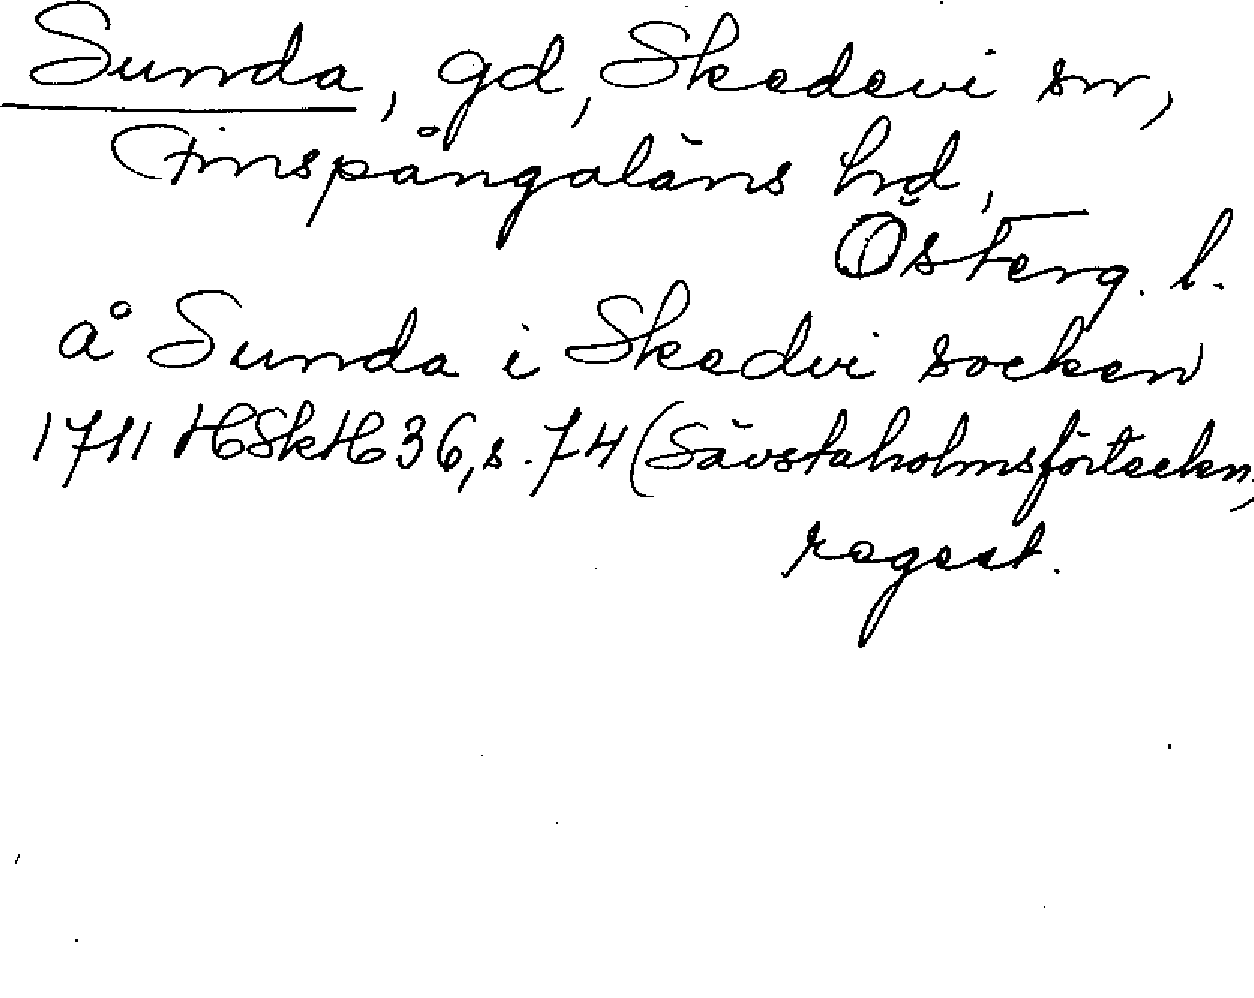 Sunda, gd, Skedevi sn,
Finspångaläns hd,
Österg. l.
å Sunda i Skedvi socken
1711 HSkH 36, s. 74 (Sävstaholmsförteckn.,
regest.